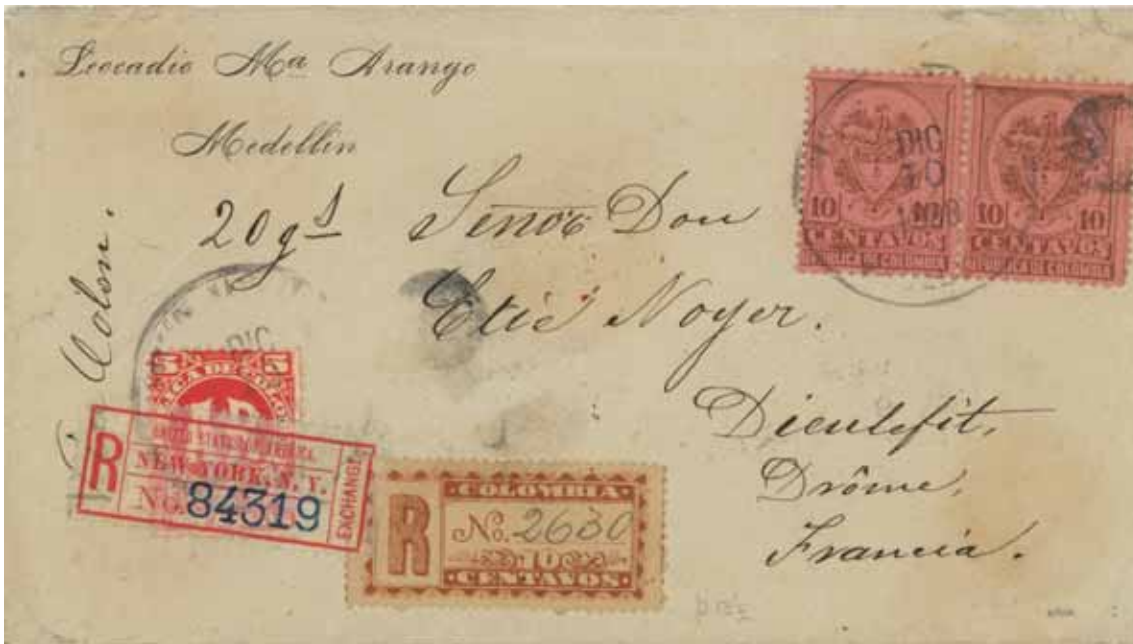 Leocadio Mª Arango
Medellin
20 gs
Colon.
Señor Don
Noyer.
Dieulefit,
Drôme,
Francia.
10 10
CENTAVOS
REPUBLICA DE COLOMBIA
10 10
CENTAVOS
REPUBLICA DE COLOMBIA
DIC
10
5 5
DIC
R
NEW YORK, N.Y.
No. 84319
EXCHANGE
COLOMBIA
R
No. 2630
10
CENTAVOS